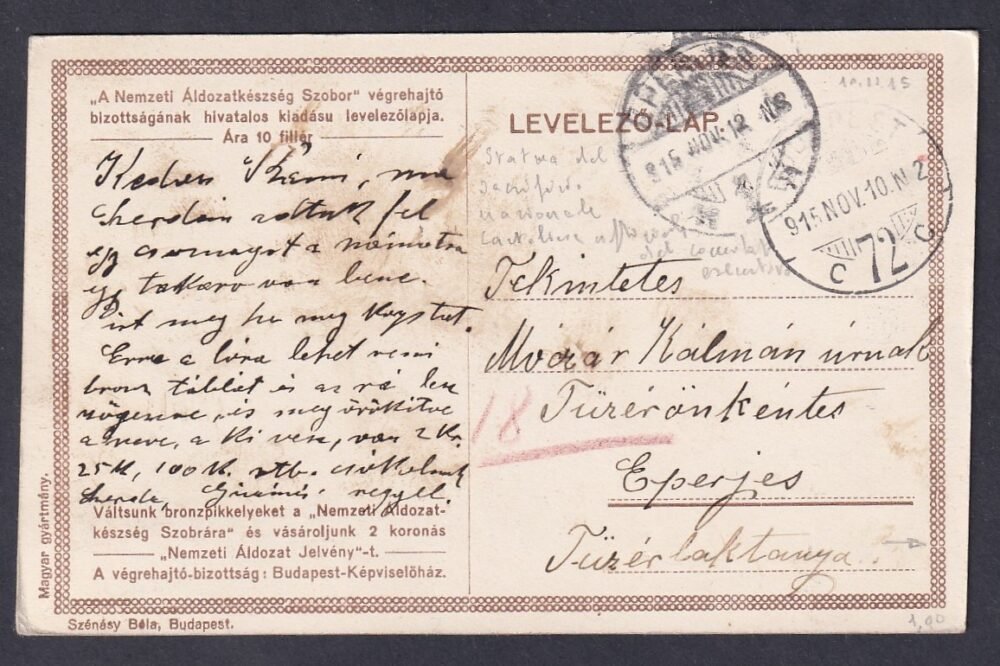 „A Nemzeti Áldozatkészség Szobor” végrehajtó
bizottságának hivatalos kiadásu levelezőlapja.
Ára 10 fillér
Kedves
szerdán adtuk fel
egy csomagot a
egy takaro van bene.
irt meg ha meg kaptat.
Erre a lóra lehet venni
táblát és az rá lesz
és meg örökitve
a neve, a ki vesz, van 2 Kr.
25 K, 100 K. stb. csókolunk
szerda, reggel.
Váltsunk bronzpikkelyeket a „Nemzeti Áldozat-
készség Szobrára” és vásároljunk 2 koronás
„Nemzeti Áldozat Jelvény”-t.
A végrehajtó-bizottság: Budapest-Képviselőház.
Magyar gyártmány.
Szénásy Béla, Budapest.
LEVELEZŐ-LAP
10.11.15
EPERJES
915 NOV. 12
915 NOV. 10. N. 2
C 72 C
Statua del
sacrificio
nazionale
Tekintetes
Kálmán úrnak
18
Tüzérönkéntes
Eperjes
Tüzérlaktanya
1,90